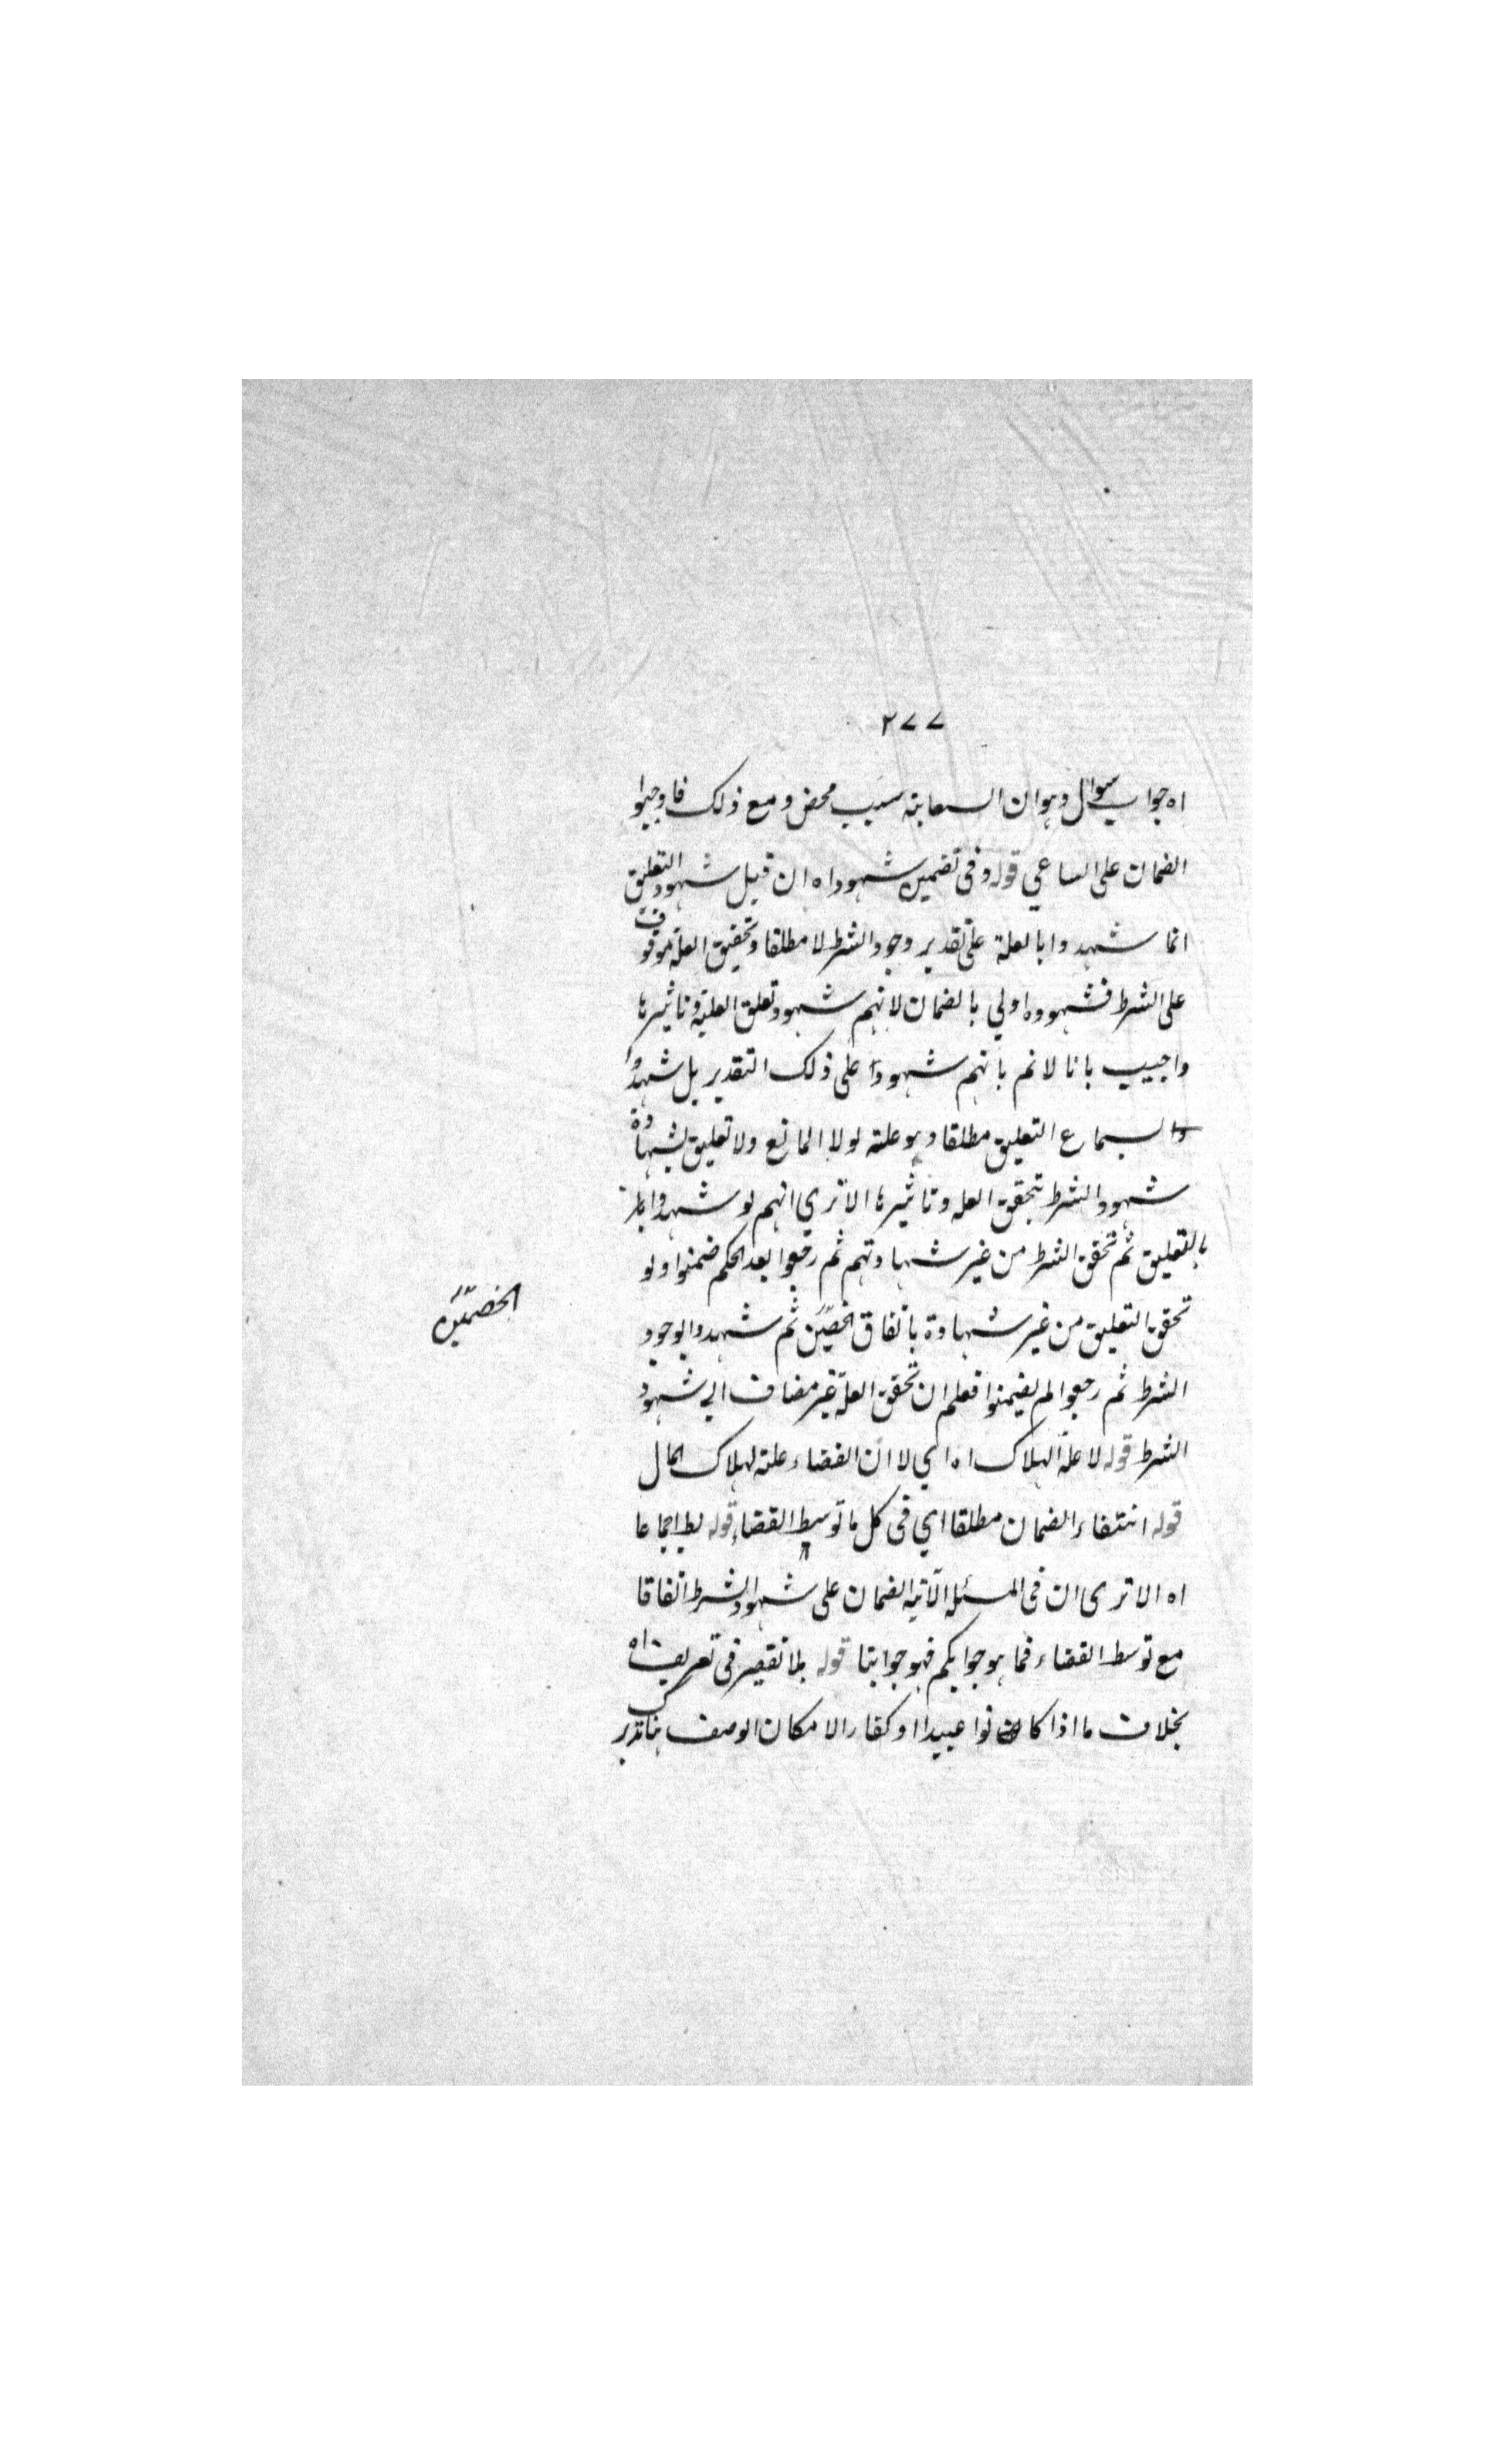 ٢٧٧
اه جواب سوال وهو ان السعاية سبب محض ومع ذلك فاوجبوا
الضمان على الساعي قوله وفى تضمين شهود اه ان قيل شهود التعليق
انما شهدوا بالعلة على تقدير وجود الشرط لا مطلقا وتحقيق العلة موقوف
على الشرط فشهوده اولي بالضمان لانهم شهود تعلق العلية وتاثيرها
واجيب بانا لانم بانهم شهودا على ذلك التقدير بل شهدوا
بسماع التعليق مطلقا وهو علته لولا المانع ولا تعليق بشهادة
شهود الشرط بتحقق العله وتاثيرها الا تري انهم لو شهدوا
بالتعليق ثم تحقق الشرط من غير شهادتهم ثم رجعوا بعد الحكم ضمنوا ولو
تحقق التعليق من غير شهادة باتفاق الخصمين ثم شهدوا بوجود
الخصمين
الشرط ثم رجعوا لم يضمنوا فعلم ان تحقق العلة غير مضاف الي شهود
الشرط قوله لا علة الهلاك اه اي لا ان القضاء علته لهلاك المال
قوله انتفاء الضمان مطلقا اي فى كل ما توسط القضاء قوله اجماعا
اه الا ترى ان فى المسئلة الآتية الضمان على شهود الشرط اتفاقا
مع توسط القضاء فما هو جوابكم فهو جوابنا قوله بلا تقصير فى تعريف اه
بخلاف ما اذا كانوا عبيدا او كفارا لامكان الوصف هنا تدبر